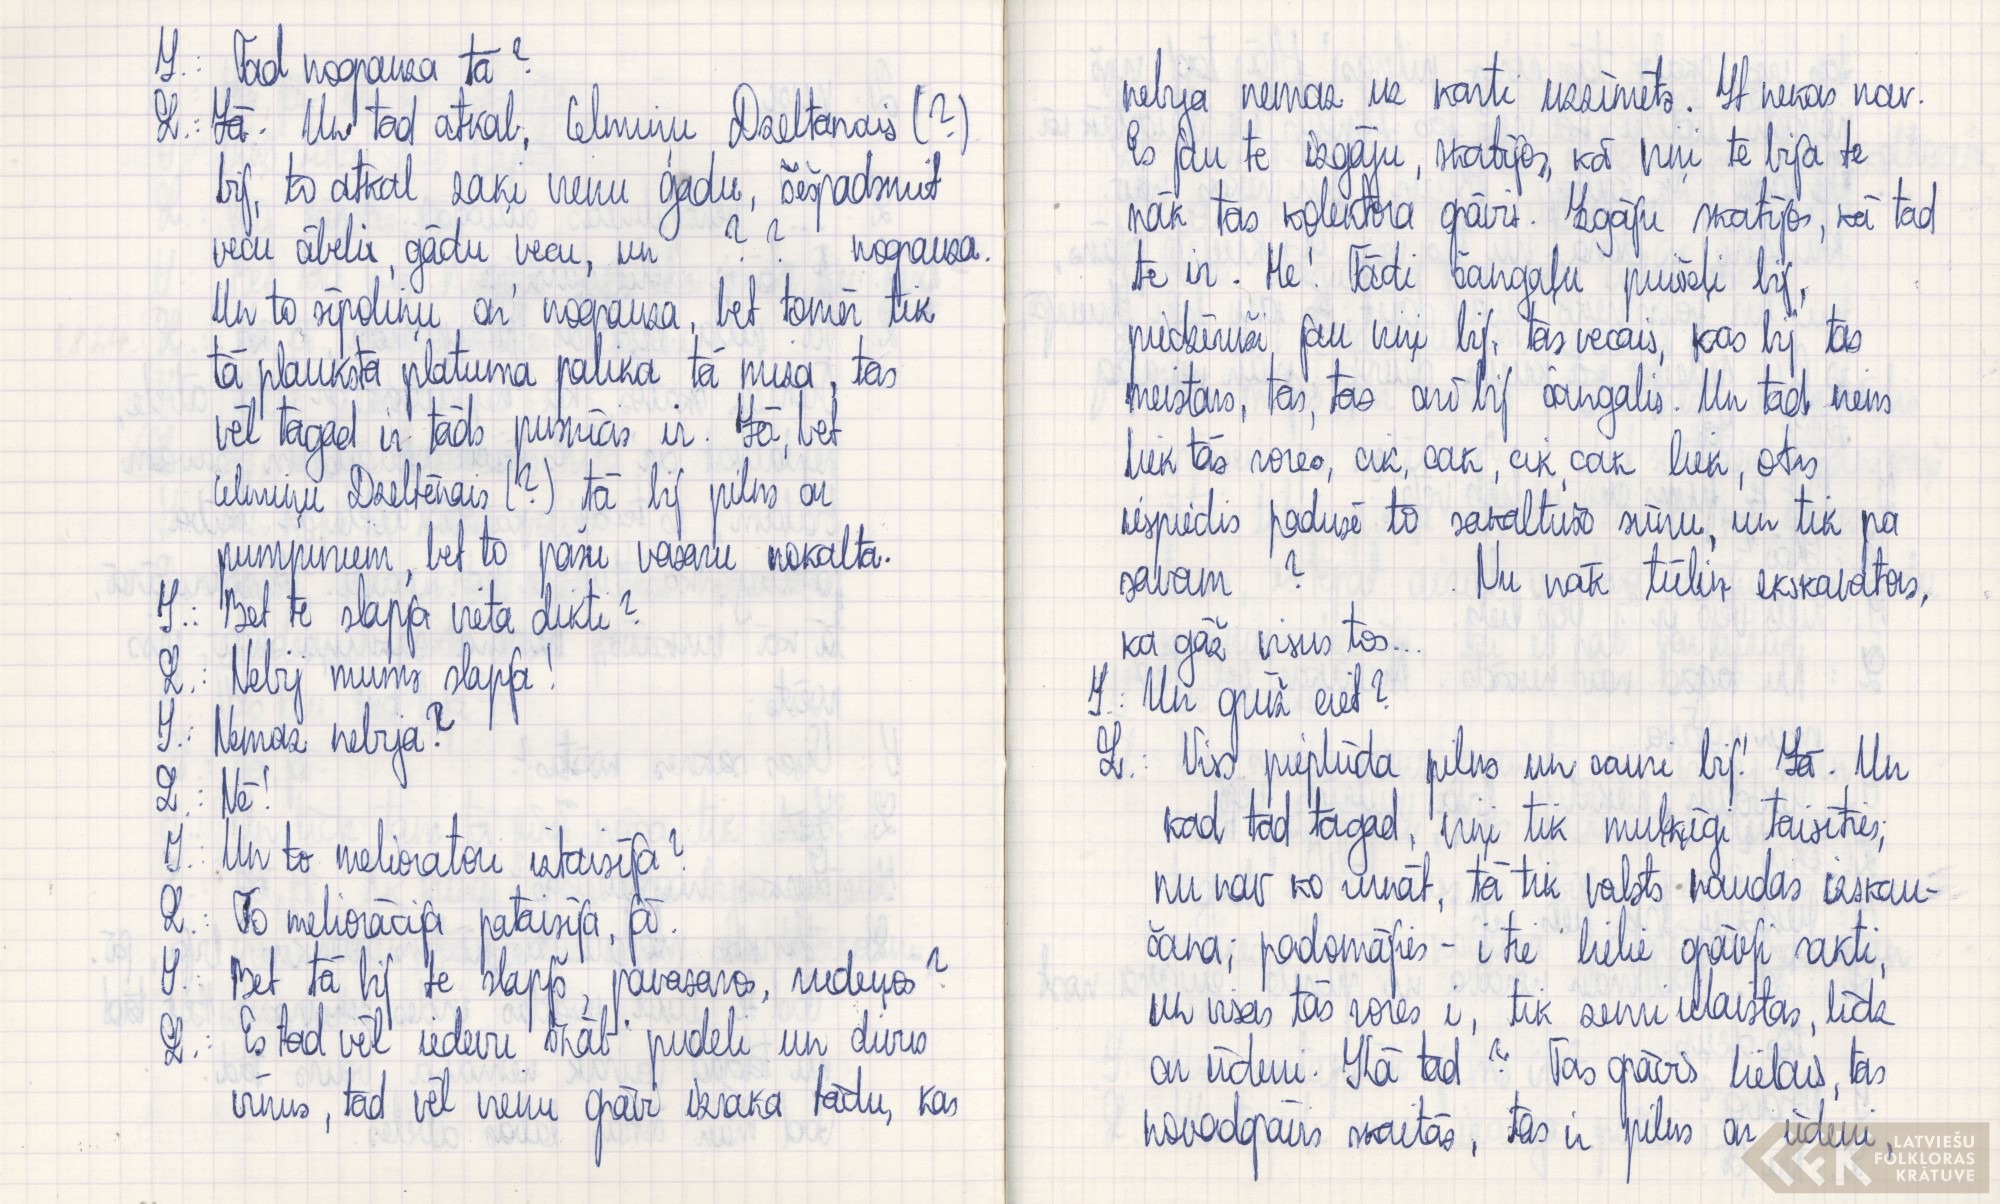 I.: Tad nograuza tā?
Z.: Jā. Un tad atkal, Celmiņu Dzeltanais (?)
bij, to atkal zaķi vienu gadu, sešpadsmit
vecu ābeli, gadu vecu, un ? ? nograuza.
Un to sīpoliņu ar' nograuza, bet tomēr tik
tā plauksta platuma palika tā miza, tas
vēl tagad ir tāds pusnīcis ir. Jā, bet
Celmiņu Dzeltēnais (?) tā bij pilns ar
pumpuriem, bet to pašu vasaru nokalta.
I.: Bet te slapja vieta dikti?
Z.: Nebij mums slapja!
I.: Nemaz nebija?
Z.: Nē!
I.: Un to melioratori iztaisīja?
Z.: To meliorācija pataisīja, jā.
I.: Bet tā bij te slapjš, pavasaros, rudeņos?
Z.: Es tad vēl iedevu skāb' pudeli un divus
vīnus, tad vēl vienu grāvi izraka tādu, kas
nebija nemaz uz karti uzzīmēts. It nekas nav.
Es jau te izgāju, skatījos, kā viņi te bija te
nāk tas kolektora grāvis. Izgāju skatījos, kā tad
te ir. He! Tādi čangaļu puišeļi bij,
piedzēruši jau viņi bij, tas vecais, kas bij tas
meistars, tas, tas arī bij čangalis. Un tad viens
liek tās rores, cik, cak, cik, cak liek, otrs
iespiedis padusē to sakaltušo sūnu, un tik pa
savam ? Nu nāk tūliņ ekskavators,
ka gāž visus tos...
I.: Un grūž ciet?
Z.: Viss pieplūda pilns un cauri bij! Jā. Un
kad tad tagad, viņi tik muļķīgi taisīties;
nu nav ko runāt, tā tik valsts naudas izskau-
šana; padomājies - i tie lielie grāvji rakti,
un visas tās rores i, tik zemi ielaistas, līdz
ar ūdeni. Kā tad? Tas grāvis lielais, tas
novadgrāvis skaitās, tas ir pilns ar ūdeni,
LATVIEŠU
FOLKLORAS
KRĀTUVE